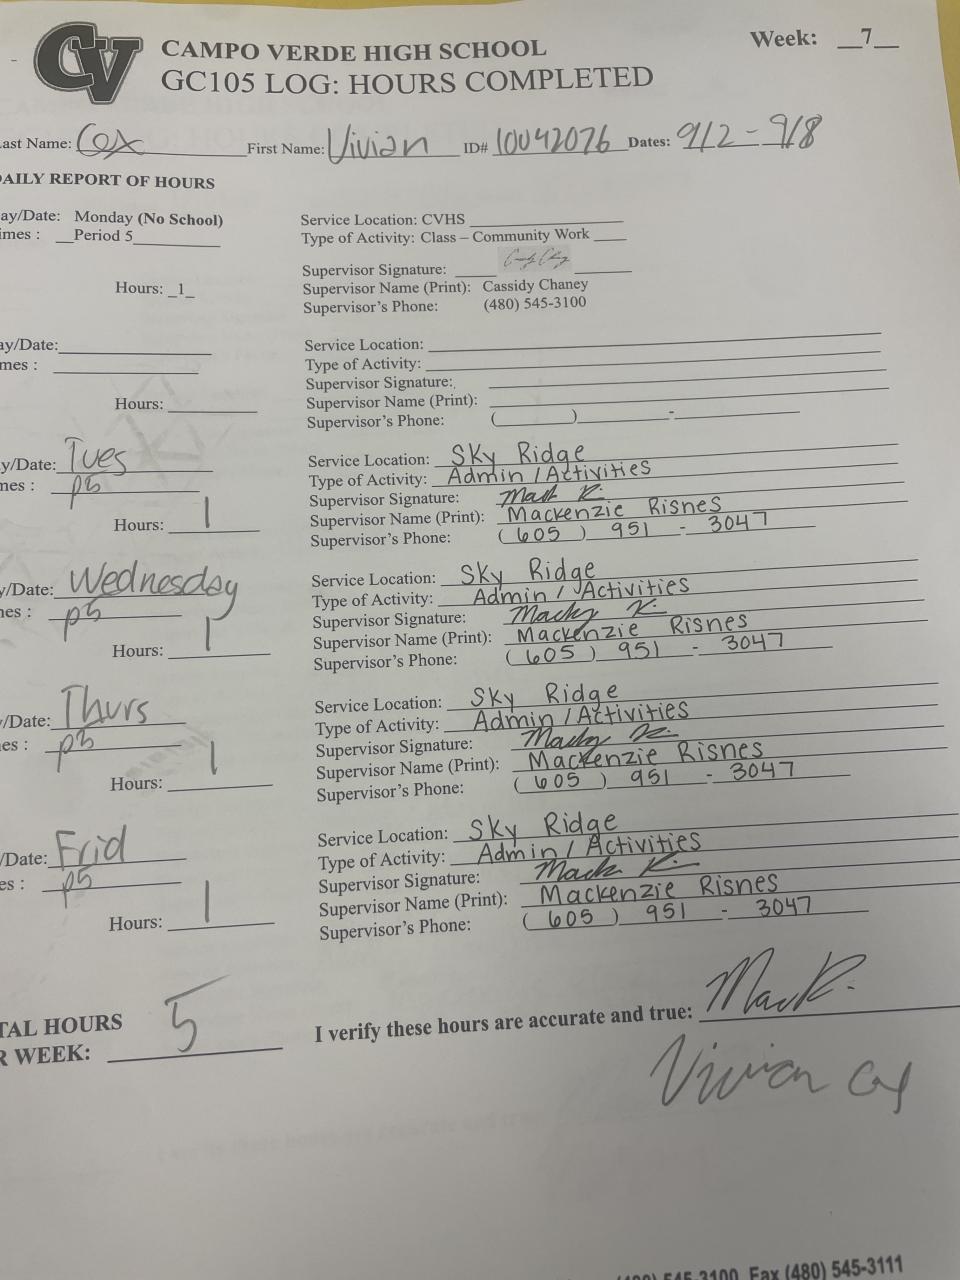 CV
CAMPO VERDE HIGH SCHOOL
Week: __7__
GC105 LOG: HOURS COMPLETED
ast Name: Cox First Name: Vivian ID# 10042076 Dates: 9/2 - 9/8
DAILY REPORT OF HOURS
ay/Date: Monday (No School)
Service Location: CVHS
imes : __Period 5
Type of Activity: Class – Community Work
Supervisor Signature:
Hours: _1_
Supervisor Name (Print): Cassidy Chaney
Supervisor's Phone: (480) 545-3100
ay/Date:
Service Location:
mes :
Type of Activity:
Supervisor Signature:
Hours:
Supervisor Name (Print):
Supervisor's Phone: ( ) -
y/Date: Tues
Service Location: Sky Ridge
mes : p5
Type of Activity: Admin / Activities
Supervisor Signature: Mack R.
Hours: 1
Supervisor Name (Print): Mackenzie Risnes
Supervisor's Phone: (605) 951 - 3047
y/Date: Wednesday
Service Location: Sky Ridge
nes : p5
Type of Activity: Admin / Activities
Supervisor Signature:
Hours: 1
Supervisor Name (Print): Mackenzie Risnes
Supervisor's Phone: (605) 951 - 3047
/Date: Thurs
Service Location: Sky Ridge
es : p5
Type of Activity: Admin / Activities
Supervisor Signature:
Hours: 1
Supervisor Name (Print): Mackenzie Risnes
Supervisor's Phone: (605) 951 - 3047
/Date: Frid
Service Location: Sky Ridge
es : p5
Type of Activity: Admin / Activities
Supervisor Signature: Mack R.
Hours: 1
Supervisor Name (Print): Mackenzie Risnes
Supervisor's Phone: (605) 951 - 3047
TAL HOURS
R WEEK: 5
I verify these hours are accurate and true: Mack R.
Vivian Cox
(480) 545-3100 Fax (480) 545-3111